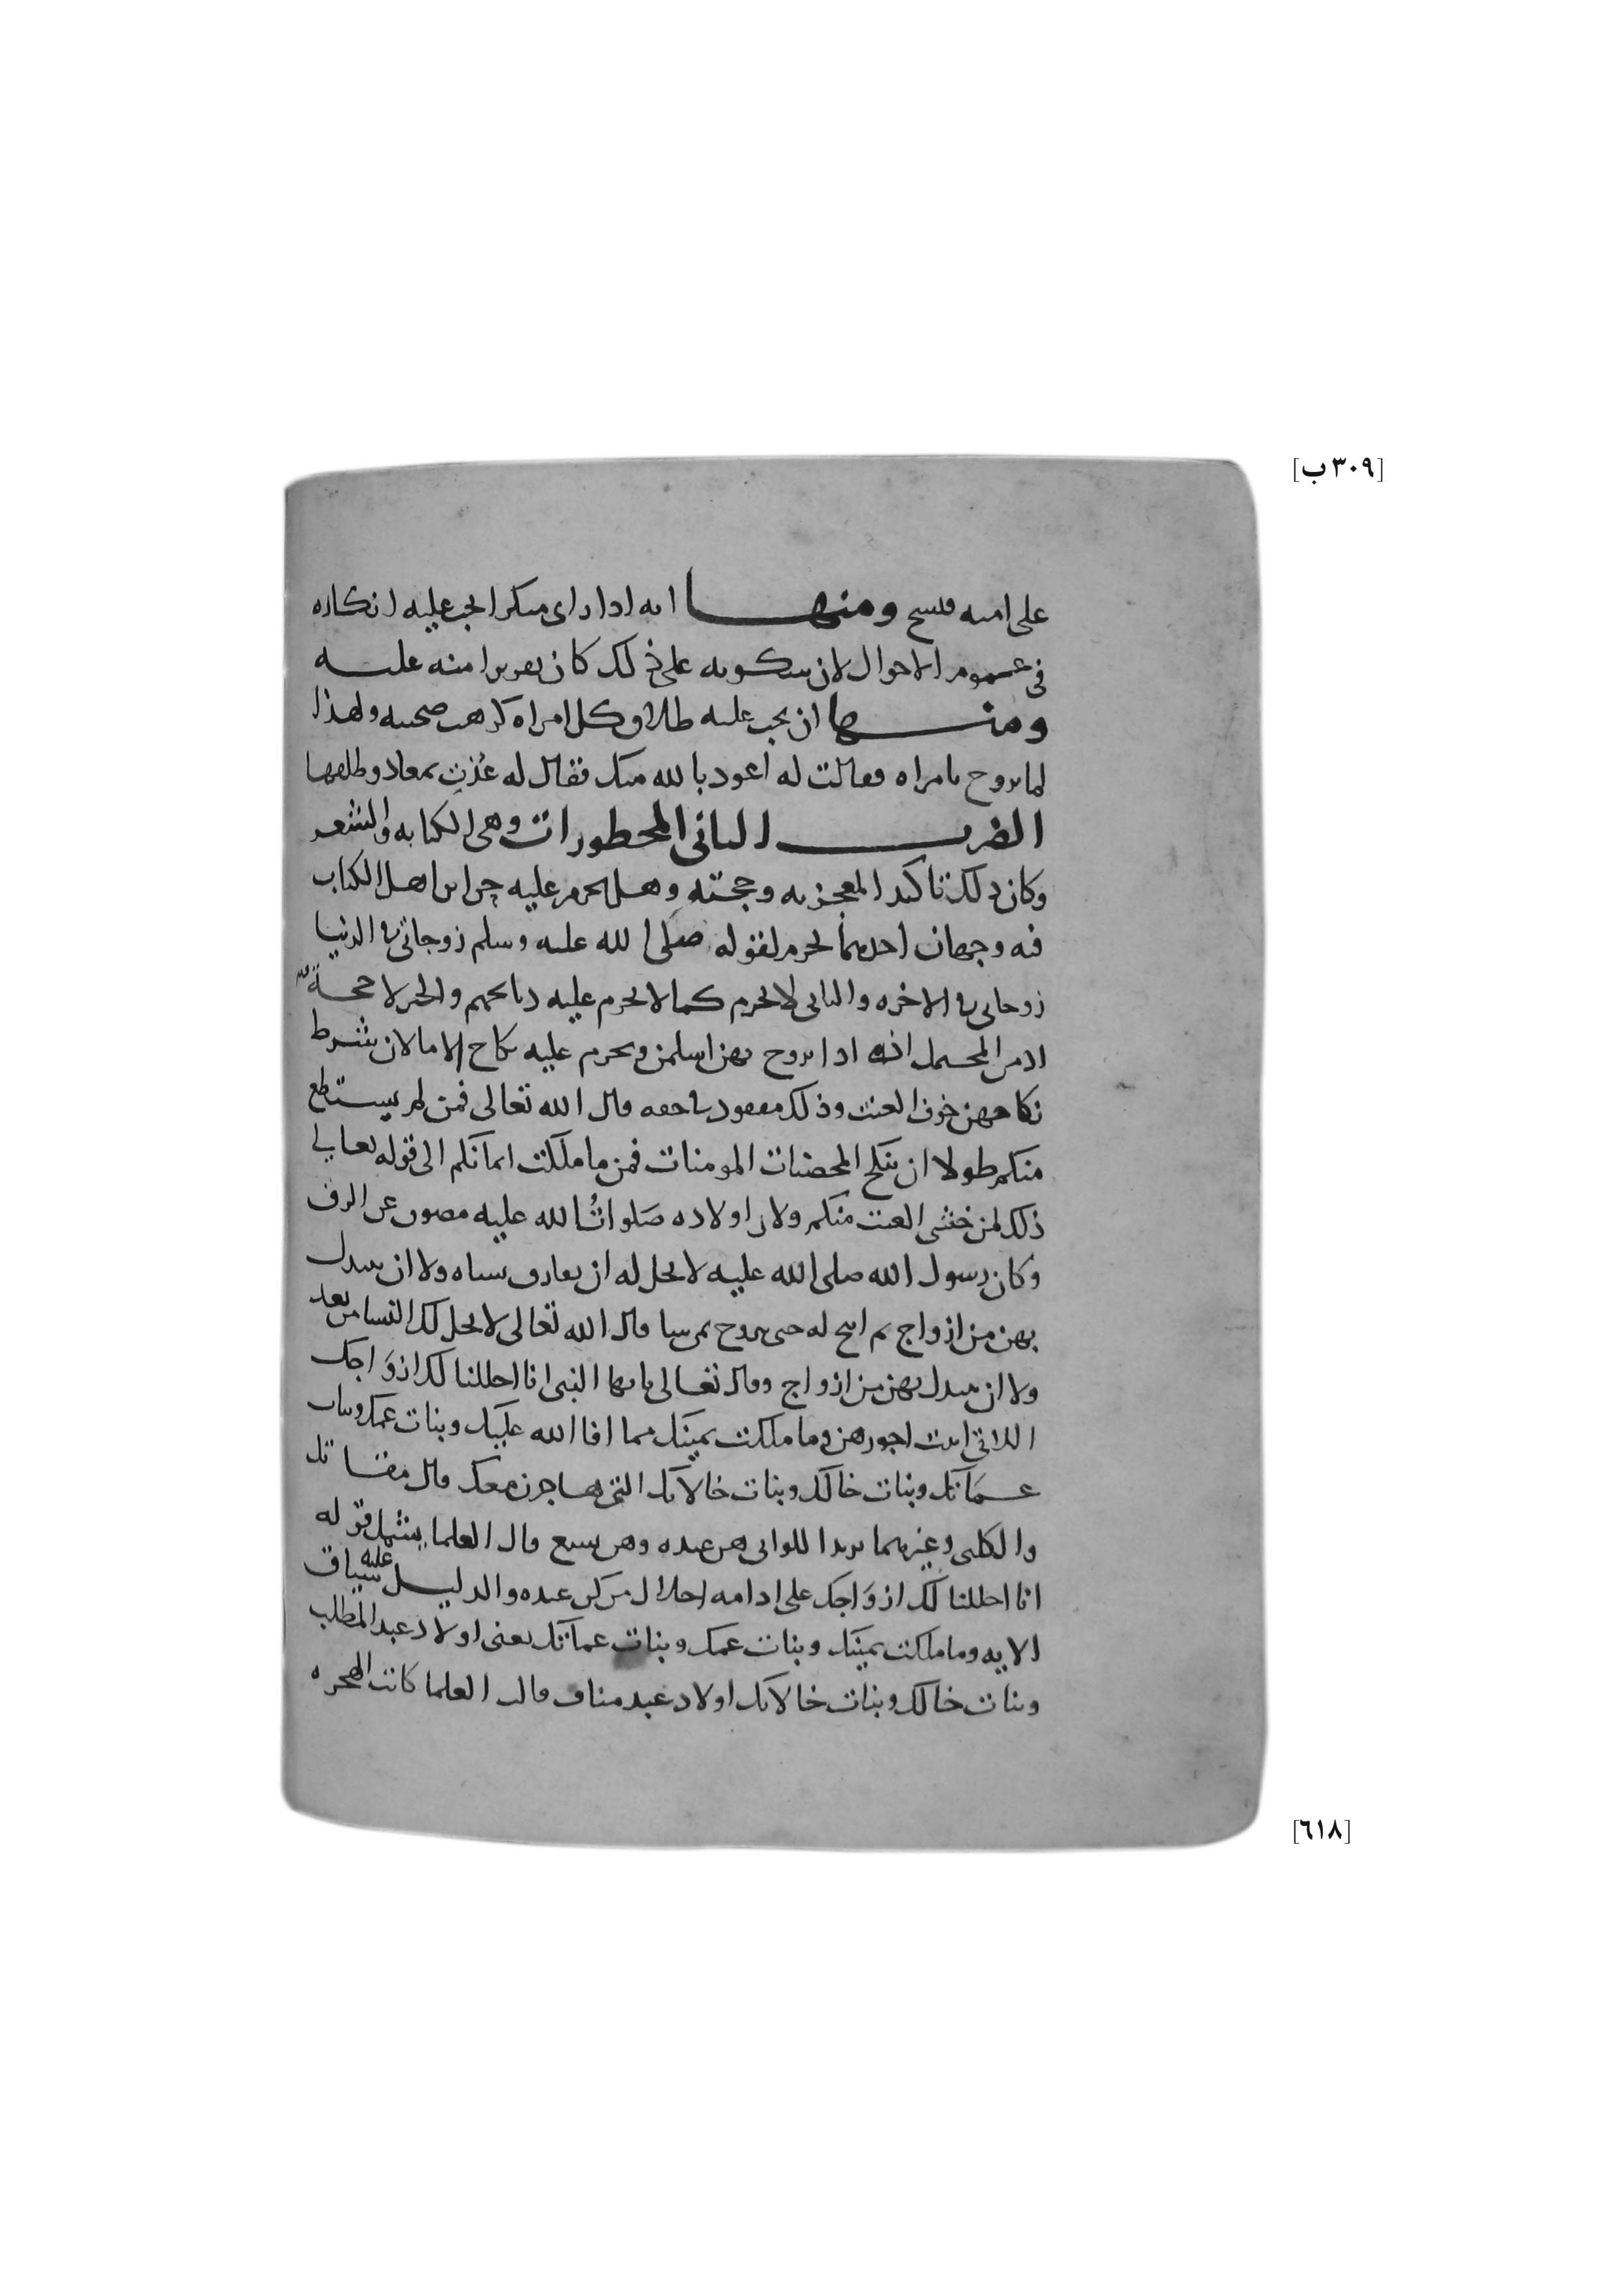 [٣٠٩ ب]
على امته فنسخ ومنها انه اذا راى منكرا يجب عليه انكاره
في عموم الاحوال لان سكوته على ذلك كان تقريرا منه عليه
ومنها ان يجب عليه طلاق كل امراة كرهت صحبته ولهذا
لما تزوج بامراه فقالت له اعوذ بالله منك فقال له عُذتِ بمعاذ وطلقها
الضرب الثاني المحظورات وهي الكتابه والشعر
وكان ذلك تاكيدا لمعجزته وحجته وهل يحرم عليه حراير اهل الكتاب
فيه وجهان احدهما يحرم لقوله صلى الله عليه وسلم زوجاتي في الدنيا
زوجاتي في الاخره والثاني لا يحرم كما لا يحرم عليه ذبائحهم والخبر لا حجة
اذ من المحتمل انه اذا تزوج بهن اسلمن ويحرم عليه نكاح الاما لان شرط
نكاحهن خوف العنت وذلك مفقود في حقه قال الله تعالى فمن لم يستطع
منكم طولا ان ينكح المحصنات المومنات فمن ما ملكت ايمانكم الى قوله تعالى
ذلك لمن خشي العنت منكم ولان اولاده صَلواتُ الله عليه مصون عن الرق
وكان رسول الله صلى الله عليه لا يحل له ان يفارق نساه ولا ان يتبدل
بهن من ازواج ثم ابيح له حتى يزوج بمن شا قال الله تعالى لا يحل لك النسا من بعد
ولا ان تبدل بهن من ازواج وقال تعالى يا ايها النبي انا احللنا لك ازوَاجك
اللاتي اتيت اجورهن وما ملكت يمينك مما افا الله عليك وبنات عمك وبنات
عمَاتك وبنات خالك وبنات خالاتك التي هاجرن معك قال مقاتل
والكلبي وغيرهما يريد اللواتي هن عنده وهن تسع قال العلما يشمل قوله
انا احللنا لك ازوَاجك على ادامه احلال من كن عنده والدليل عليه سياق
الايه وما ملكت يمينك وبنات عمك وبنات عماتك يعني اولاد عبد المطلب
وبنات خالك وبنات خالاتك اولاد عبد مناف قال العلما كانت الهجره
[٦١٨]